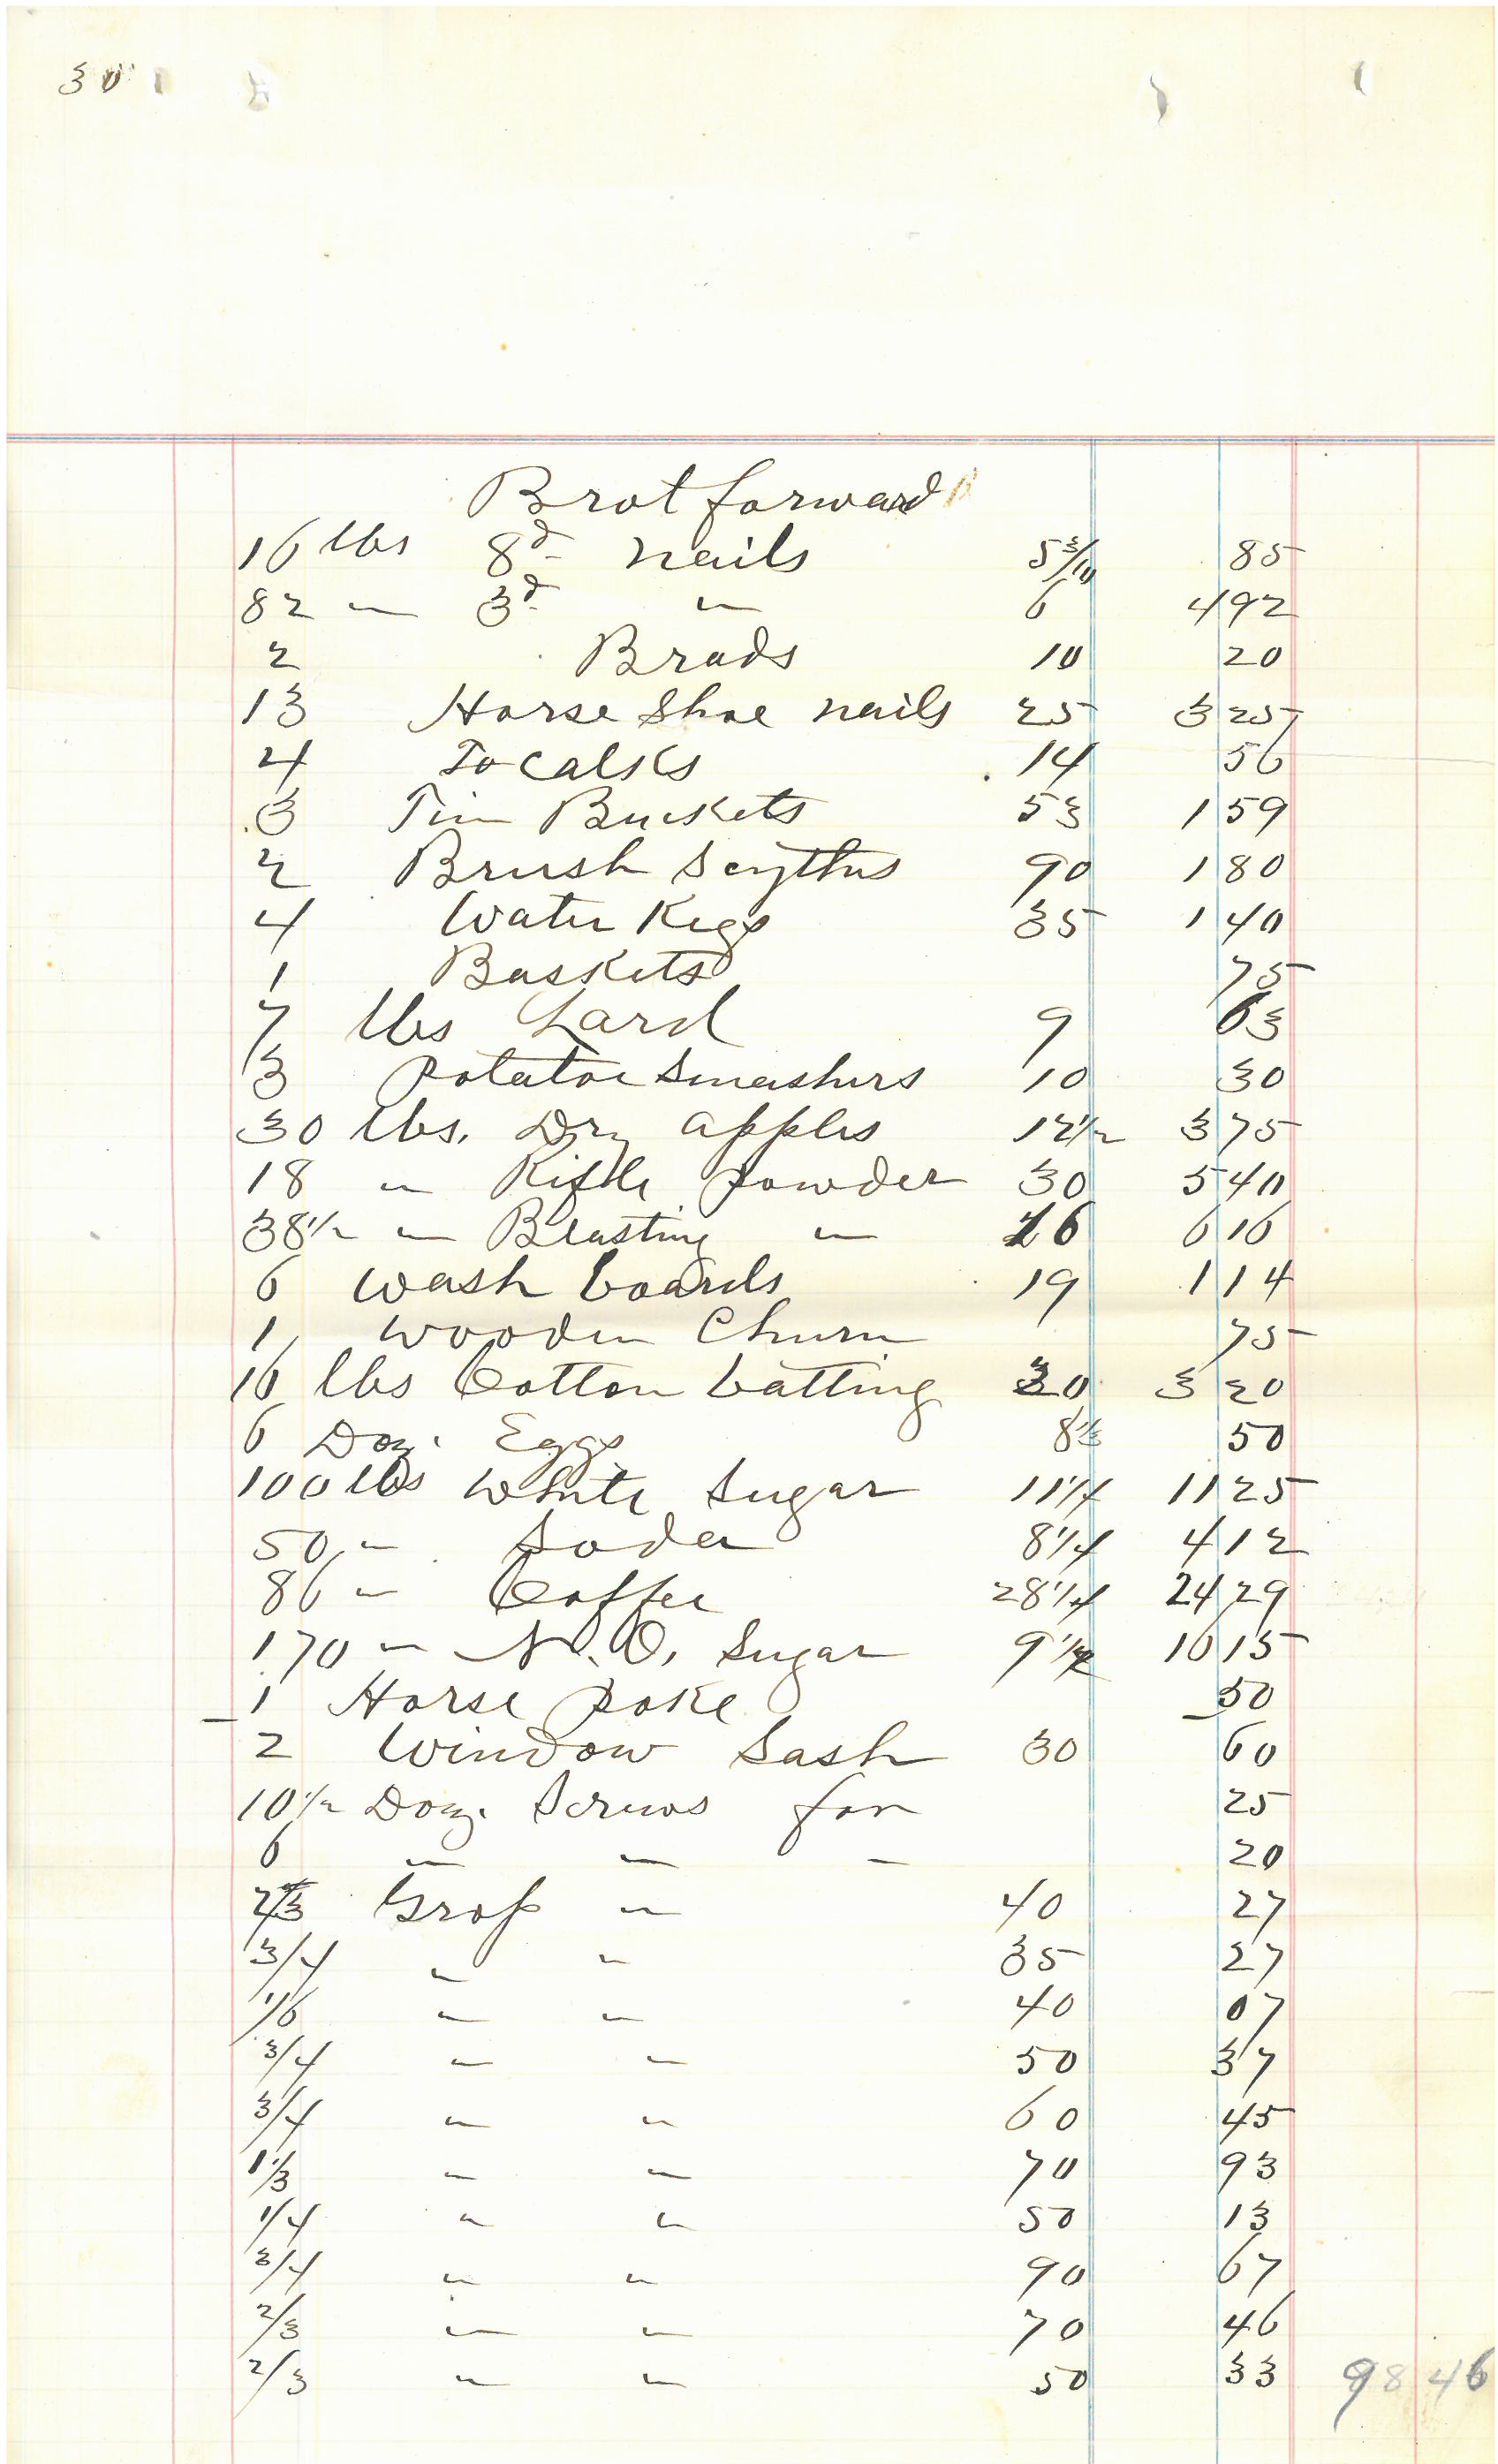 30
Brot forward
16 lbs 8d nails 5 3/10 85
82 " 3d " 6 4 92
2 Brads 10 20
13 Horse Shoe nails 25 3 25
4 To Calks 14 56
3 Tin Buckets 53 1 59
2 Brush Scythes 90 1 80
4 Water Kegs 35 1 40
1 Baskets 75
7 lbs Lard 9 63
3 Potatoe Smashers 10 30
30 lbs. Dry apples 12 1/2 3 75
18 " Rifle Powder 30 5 40
38 1/2 " Blasting " 16 6 16
6 Wash boards 19 1 14
1 Wooden Churn 75
16 lbs Cotton batting 20 3 20
6 Doz. Eggs 8 1/3 50
100 lbs White Sugar 11 1/4 11 25
50 " Soda 8 1/4 4 12
86 " Coffee 28 1/4 24 29
170 " N.O. Sugar 9 1/2 16 15
1 Horse Poke 50
2 Window Sash 30 60
10 1/2 Doz. Screws for 25
6 " " " 20
2/3 Gross " 40 27
3/4 " " 35 27
1/6 " " 40 07
3/4 " " 50 37
3/4 " " 60 45
1 1/3 " " 70 93
1/4 " " 50 13
3/4 " " 90 67
2/3 " " 70 46
2/3 " " 50 33 98 46